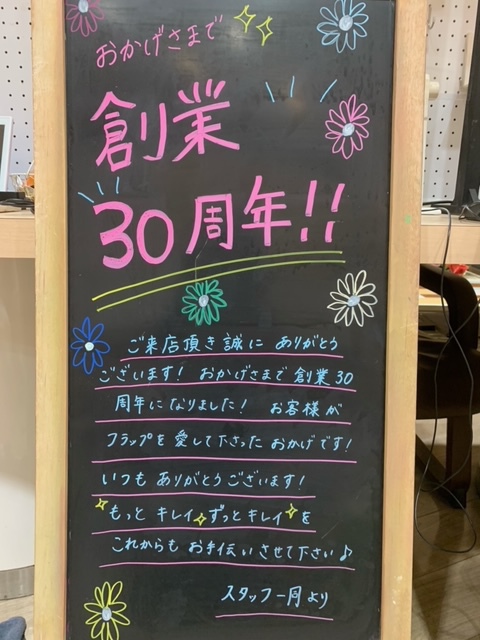 おかげさまで
創業
30周年!!
ご来店頂き誠に ありがとう
ございます! おかげさまで 創業30
周年になりました! お客様が
フラップを愛して下さった おかげです!
いつも ありがとうございます!
もっと キレイ ずっと キレイ を
これからも お手伝いさせて下さい♪
スタッフ一同より